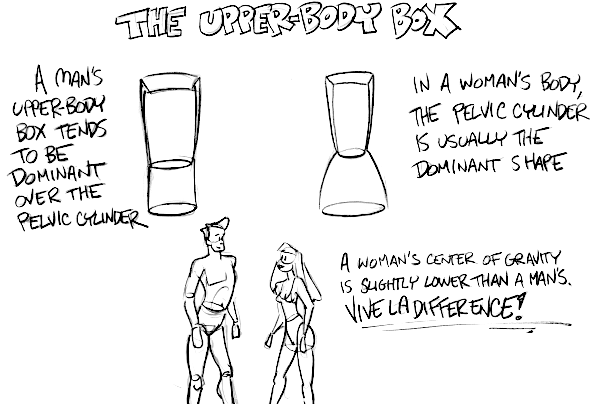 THE UPPER-BODY BOX
A MAN'S
UPPER-BODY
BOX TENDS
TO BE
DOMINANT
OVER THE
PELVIC CYLINDER
IN A WOMAN'S BODY,
THE PELVIC CYLINDER
IS USUALLY THE
DOMINANT SHAPE
A WOMAN'S CENTER OF GRAVITY
IS SLIGHTLY LOWER THAN A MAN'S.
VIVE LA DIFFERENCE!